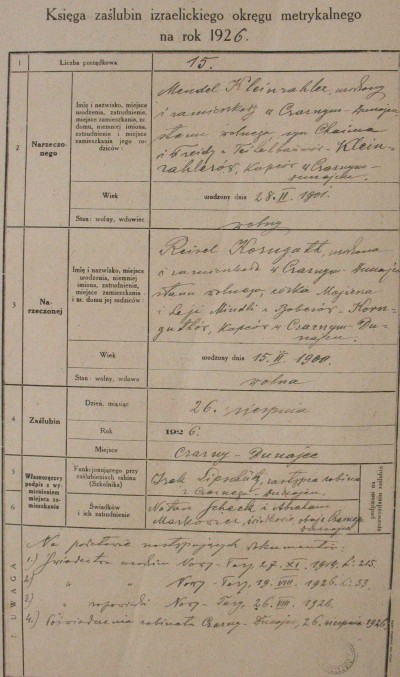 Księga zaślubin izraelickiego okręgu metrykalnego
na rok 1926.
1
Liczba porządkowa
15.
2
Narzeczo-
nego
Imię i nazwisko, miejsce
urodzenia, zatrudnienie,
miejsce zamieszkania, nr.
domu, niemniej imiona,
zatrudnienie i miejsce
zamieszkania jego ro-
dziców:
Mendel Kleinzahler, urodzony
i zamieszkały w Czarnym-Dunajcu
stanu wolnego, syn Chaima
i Freidy Klein-
zahlerów, kupców w Czarnym-
Dunajcu.
Wiek
urodzony dnia 28. II. 1901.
Stan: wolny, wdowiec
wolny
3
Na-
rzeczonej
Imię i nazwisko, miejsce
urodzenia, niemniej
imiona, zatrudnienie,
miejsce zamieszkania
i nr. domu jej rodziców:
Reisel Korngutt, urodzona
i zamieszkała w Czarnym-Dunajcu
stanu wolnego, córka Majera
i Leji Mindli z Korn-
guttów, kupców w Czarnym-Du-
najcu.
Wiek
urodzony dnia 15. 1900.
Stan: wolna, wdowa
wolna
4
Zaślubin
Dzień, miesiąc
26. sierpnia
Rok
1926.
Miejsce
Czarny-Dunajec
5
6
Własnoręczny
podpis z wy-
mienieniem
miejsca za-
mieszkania
Funkcjonującego przy
zaślubinach rabina
(Szkolnika)
Izak Lipschütz, zastępca rabina
z Czarnego-Dunajca.
Świadków
i ich zatrudnienie
Natan Scheck i Abraham
Markowicz,
7
UWAGA
Na podstawie następujących dokumentów:
1.) Świadectwo urodzin Nowy-Targ 27. XI. 1919. L: 215.
2.) " " Nowy-Targ, 19. VIII. 1926. L: 53.
3.) " zapowiedzi Nowy-Targ, 26. VIII. 1926.
4.) Poświadczenia rabinatu Czarny-Dunajec, 26. sierpnia 1926.